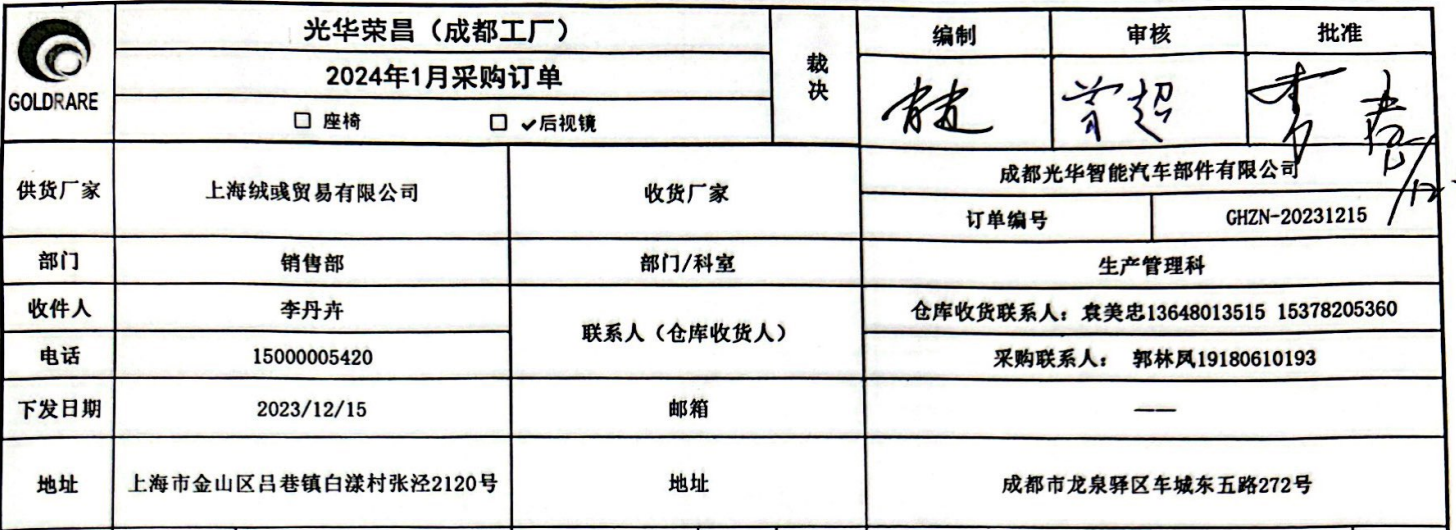 GOLDRARE
光华荣昌（成都工厂）
2024年1月采购订单
□ 座椅 □ ✓后视镜
裁决
编制 审核 批准
供货厂家 上海绒彧贸易有限公司 收货厂家 成都光华智能汽车部件有限公司
订单编号 GHZN-20231215
部门 销售部 部门/科室 生产管理科
收件人 李丹卉 联系人（仓库收货人） 仓库收货联系人：袁美忠13648013515 15378205360
电话 15000005420 采购联系人： 郭林凤19180610193
下发日期 2023/12/15 邮箱 ——
地址 上海市金山区吕巷镇白漾村张泾2120号 地址 成都市龙泉驿区车城东五路272号